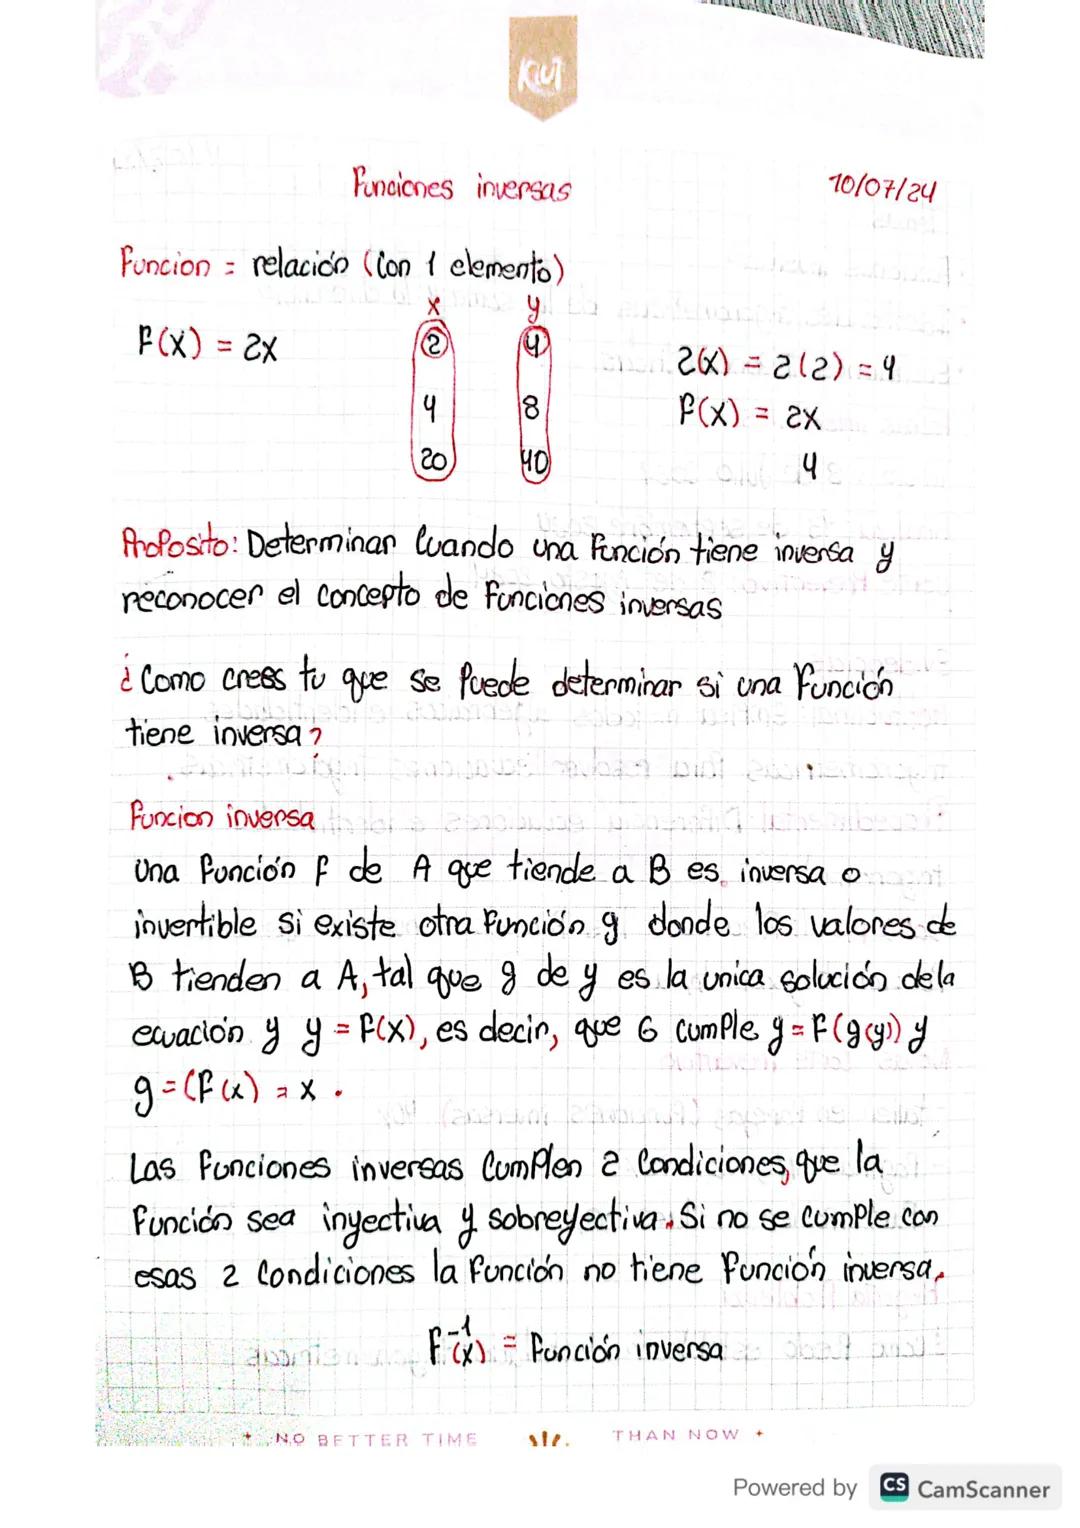 KIUT
Funciones inversas 10/07/24
Funcion = relación (Con 1 elemento)
x y
F(x) = 2x 2 4 2(x) = 2(2) = 4
4 8 F(x) = 2x
20 40 4
Proposito: Determinar Cuando una Función tiene inversa y
reconocer el concepto de Funciones inversas
¿Como crees tu que se Puede determinar si una Función
tiene inversa?
Funcion inversa
Una Función F de A que tiende a B es inversa o
invertible si existe otra Función g donde los valores de
B tienden a A, tal que g de y es la unica solución dela
ecuación y y = F(x), es decir, que G cumple y = F(g(y)) y
g = (F(x) = x.
Las Funciones inversas CumPlen 2 Condiciones, que la
Función sea inyectiva y sobreyectiva. Si no se CumPle con
esas 2 Condiciones la Función no tiene Función inversa.
F⁻¹(x) = Función inversa
NO BETTER TIME THAN NOW
Powered by CS CamScanner